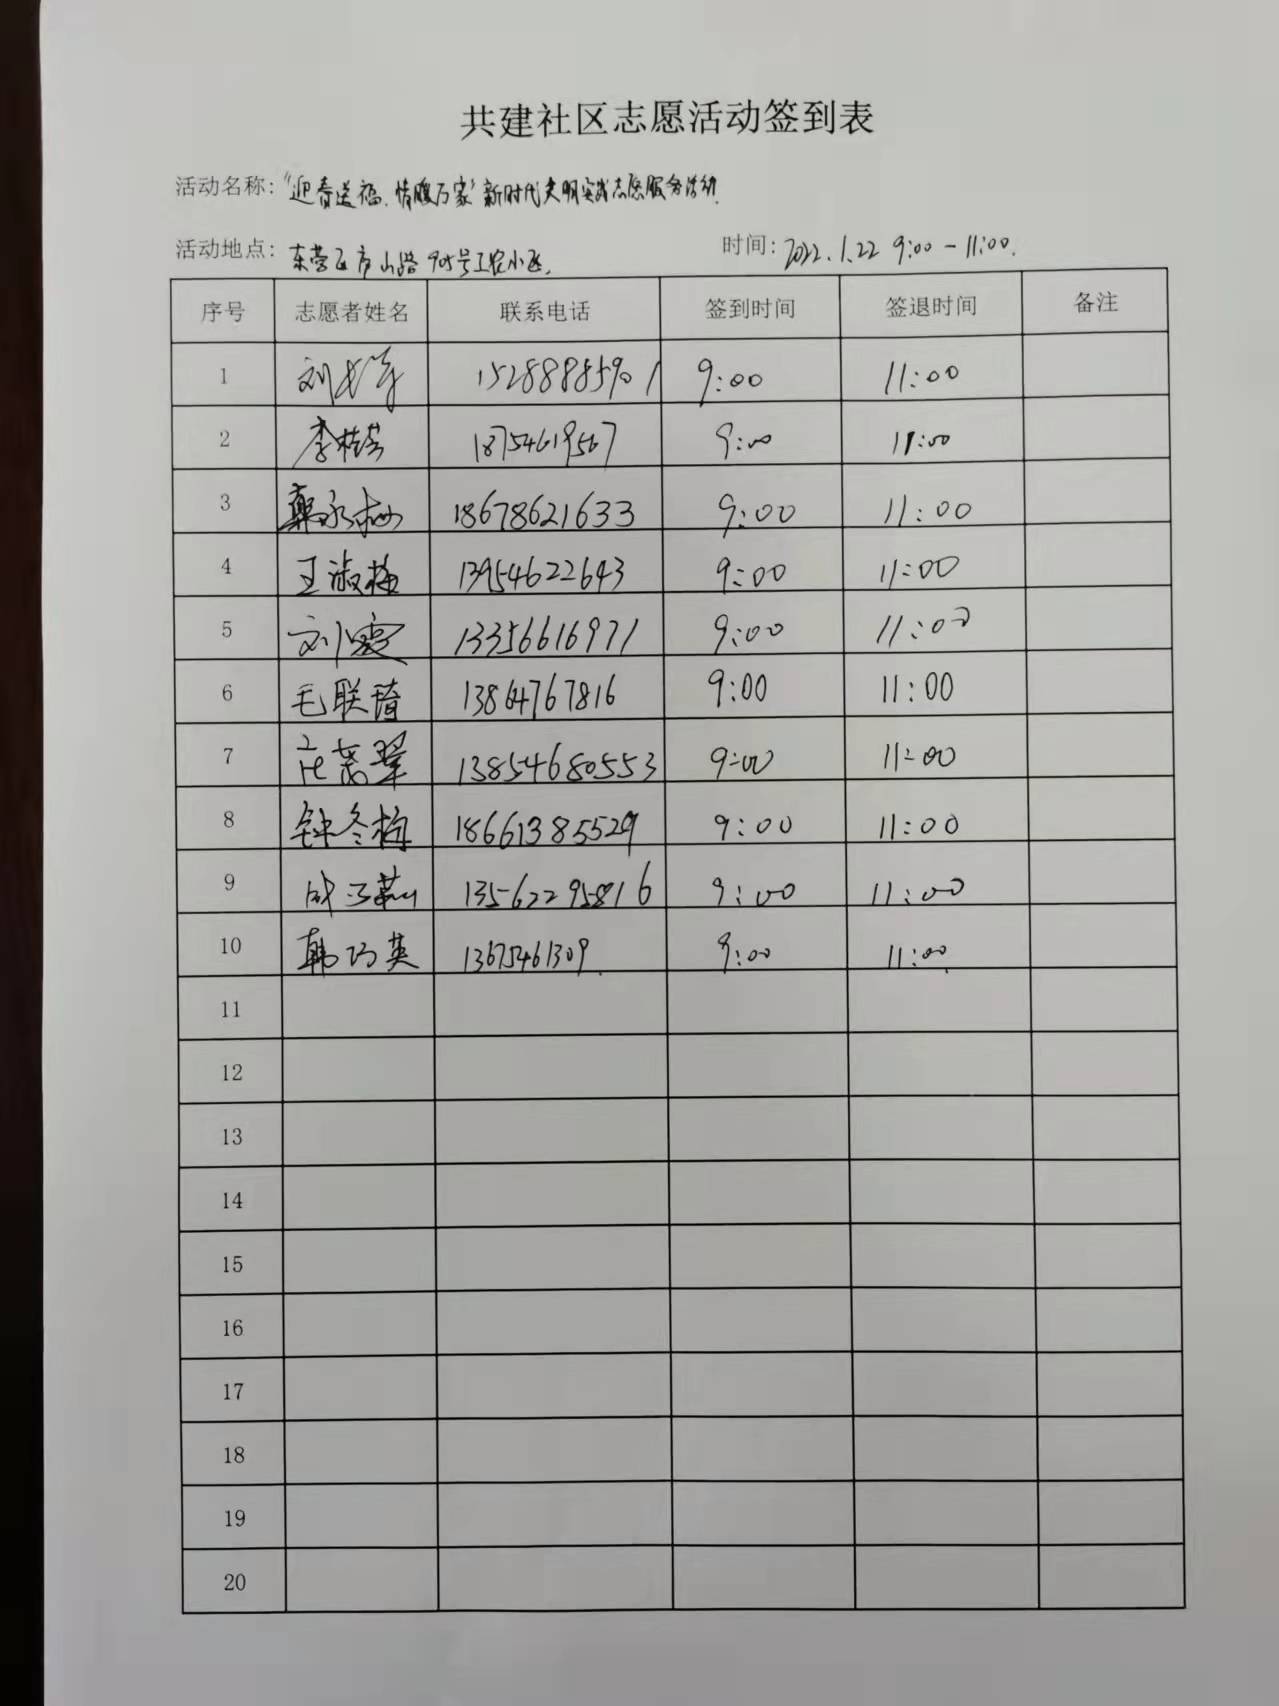 共建社区志愿活动签到表
活动名称：“迎春送福，情暖万家”新时代文明实践志愿服务活动
活动地点：东营区 路 号工农小区. 时间：2022.1.22 9:00-11:00.
序号 志愿者姓名 联系电话 签到时间 签退时间 备注
1 刘 15288885901 9:00 11:00
2 李桂芳 18754619567 9:00 11:00
3 永梅 18678621633 9:00 11:00
4 王淑梅 13954622643 9:00 11:00
5 刘霞 13356616971 9:00 11:00
6 毛联琦 13864767816 9:00 11:00
7 翠 13854680553 9:00 11:00
8 钟冬梅 18661385529 9:00 11:00
9 成 燕 13562295816 9:00 11:00
10 韩巧英 13675461309 9:00 11:00
11
12
13
14
15
16
17
18
19
20